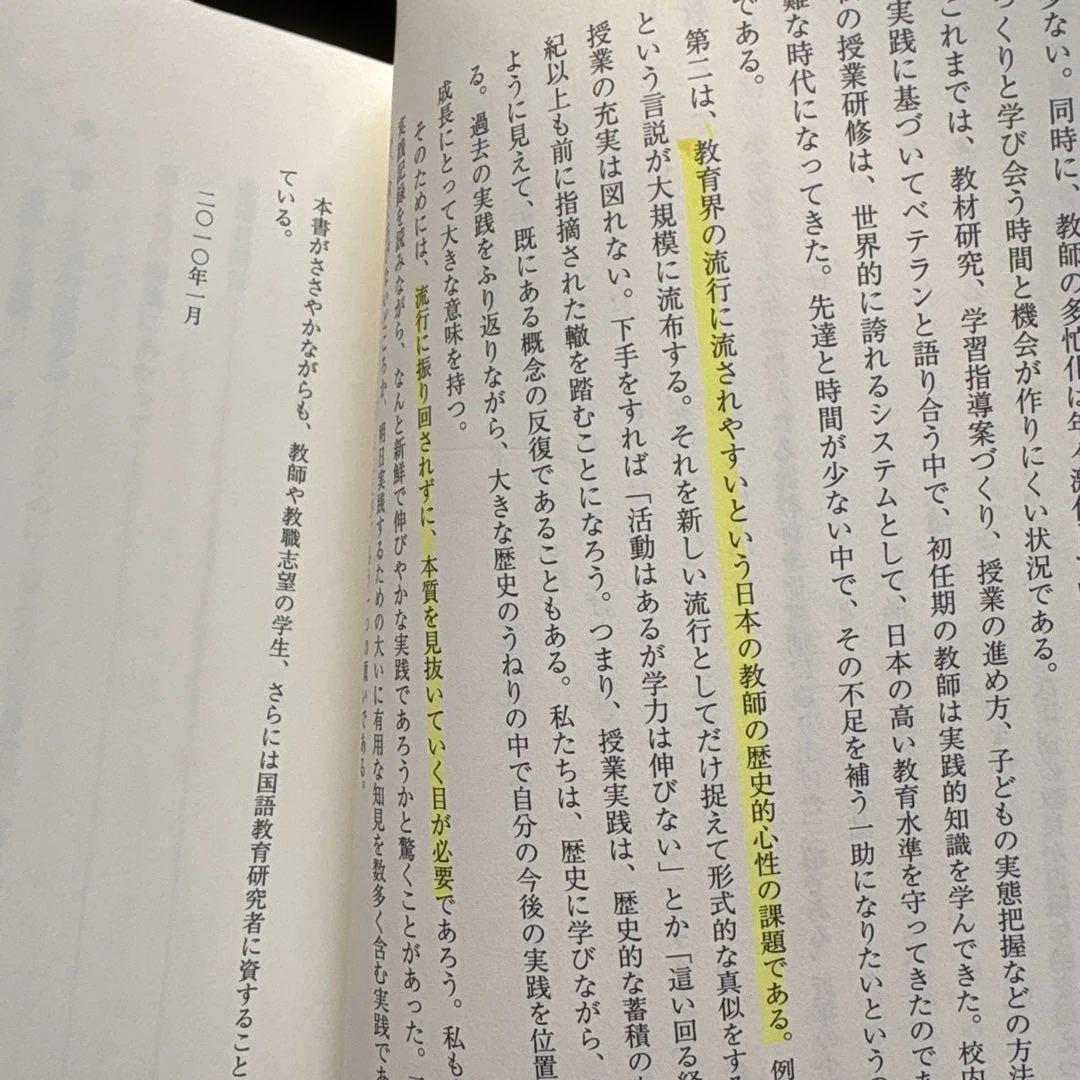 少ない。同時に、教師の多忙化は年々激
くりと学び会う時間と機会が作りにくい状況である。
これまでは、教材研究、学習指導案づくり、授業の進め方、子どもの実態把握などの方法
実践に基づいてベテランと語り合う中で、初任期の教師は実践的知識を学んできた。校内
の授業研修は、世界的に誇れるシステムとして、日本の高い教育水準を守ってきたのであ
難な時代になってきた。先達と時間が少ない中で、その不足を補う一助になりたいという
である。
第二は、教育界の流行に流されやすいという日本の教師の歴史的心性の課題である。例
という言説が大規模に流布する。それを新しい流行としてだけ捉えて形式的な真似をする
授業の充実は図れない。下手をすれば「活動はあるが学力は伸びない」とか「這い回る経
紀以上も前に指摘された轍を踏むことになろう。つまり、授業実践は、歴史的な蓄積の
ように見えて、既にある概念の反復であることもある。私たちは、歴史に学びながら、
る。過去の実践をふり返りながら、大きな歴史のうねりの中で自分の今後の実践を位置
成長にとって大きな意味を持つ。
そのためには、流行に振り回されずに、本質を見抜いていく目が必要であろう。私も
実践記録を読みながら、なんと新鮮で伸びやかな実践であろうかと驚くことがあった。
明日実践するための大いに有用な知見を数多く含む実践であ
つの願いである。
本書がささやかながらも、教師や教職志望の学生、さらには国語教育研究者に資すること
ている。
二〇一〇年一月